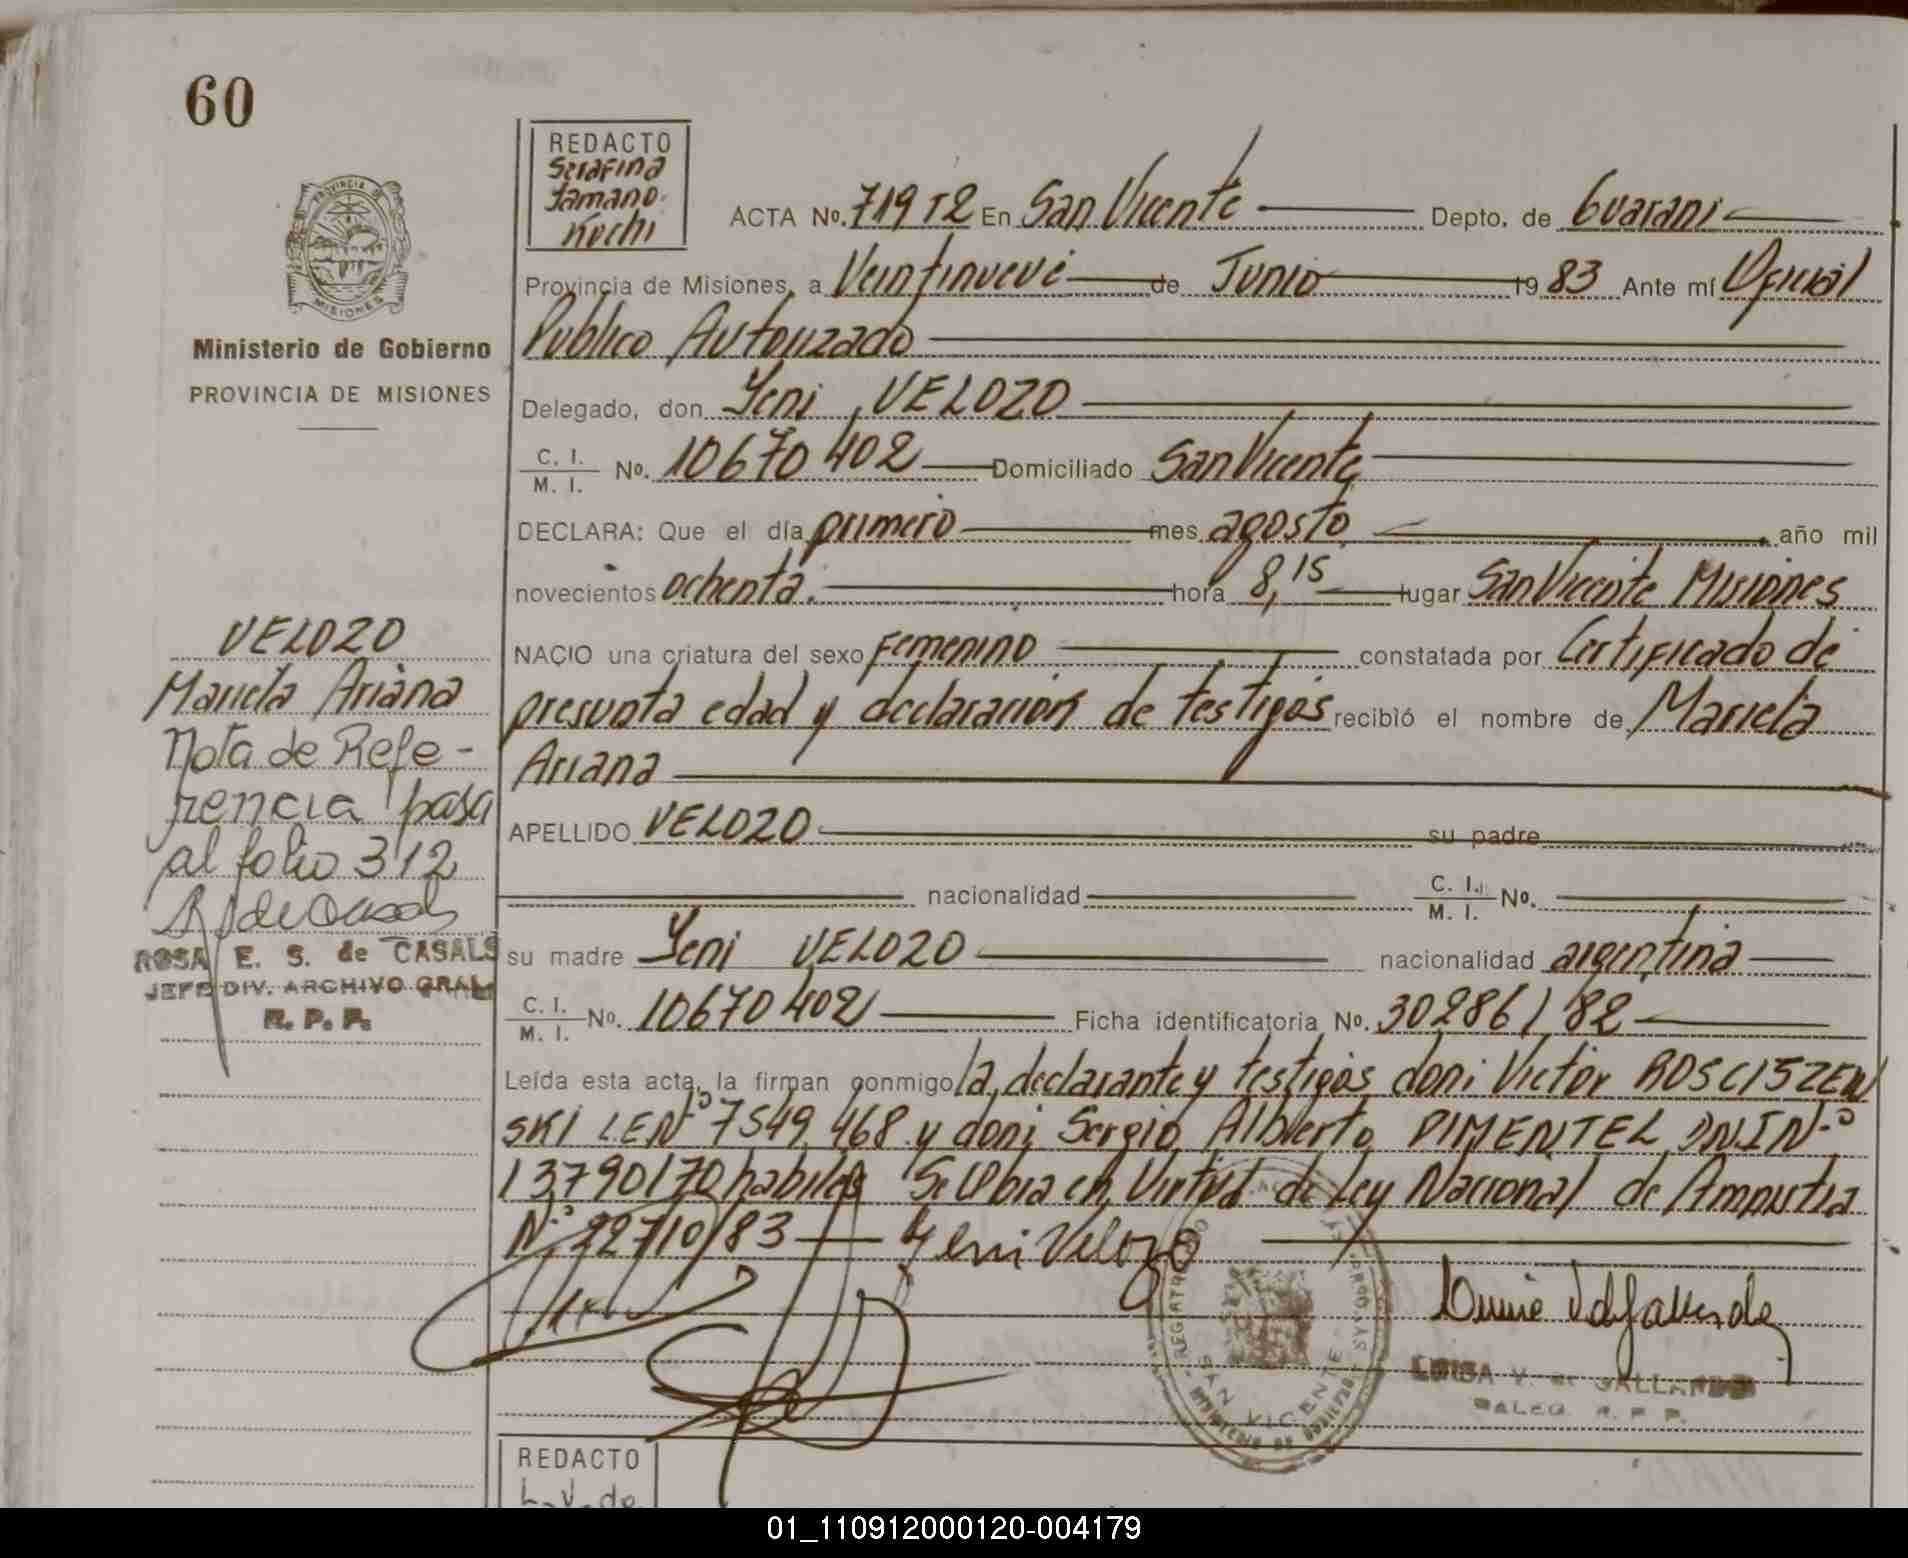 60
REDACTO
Serafina
Jamano
Kochi
PROVINCIA DE
MISIONES
Ministerio de Gobierno
PROVINCIA DE MISIONES
ACTA No. 719 T2 En San Vicente Depto. de Guarani
Provincia de Misiones, a Veintinueve de Junio 1983 Ante mí Oficial
Publico Autorizado
Delegado, don Yeni VELOZO
C. I. / M. I. No. 10670402 Domiciliado San Vicente
DECLARA: Que el día primero mes agosto año mil
novecientos ochenta. hora 8,15 lugar San Vicente Misiones
NACIO una criatura del sexo Femenino constatada por Certificado de
presunta edad y declaracion de testigos recibió el nombre de Mariela
Ariana
APELLIDO VELOZO su padre
nacionalidad C. I. / M. I. No.
su madre Yeni VELOZO nacionalidad argentina
C. I. / M. I. No. 10670402 Ficha identificatoria No. 30286/82
Leída esta acta, la firman conmigo la declarante y testigos don: Victor ROSCISZEW
SKI L.E.Nº 7549.468 y don: Sergio Alberto PIMENTEL DNI Nº
13790170 habiles Se Labra en Virtud de Ley Nacional de Amnistia
Nº 22710/83 Yeni Velozo
VELOZO
Mariela Ariana
Nota de Refe-
rencia pasa
al folio 312
ROSA E. S. de CASALS
JEFE DIV. ARCHIVO GRAL
R. P. P.
SAN VICENTE
LUISA V. de GALLARDO
R. P. P.
REDACTO